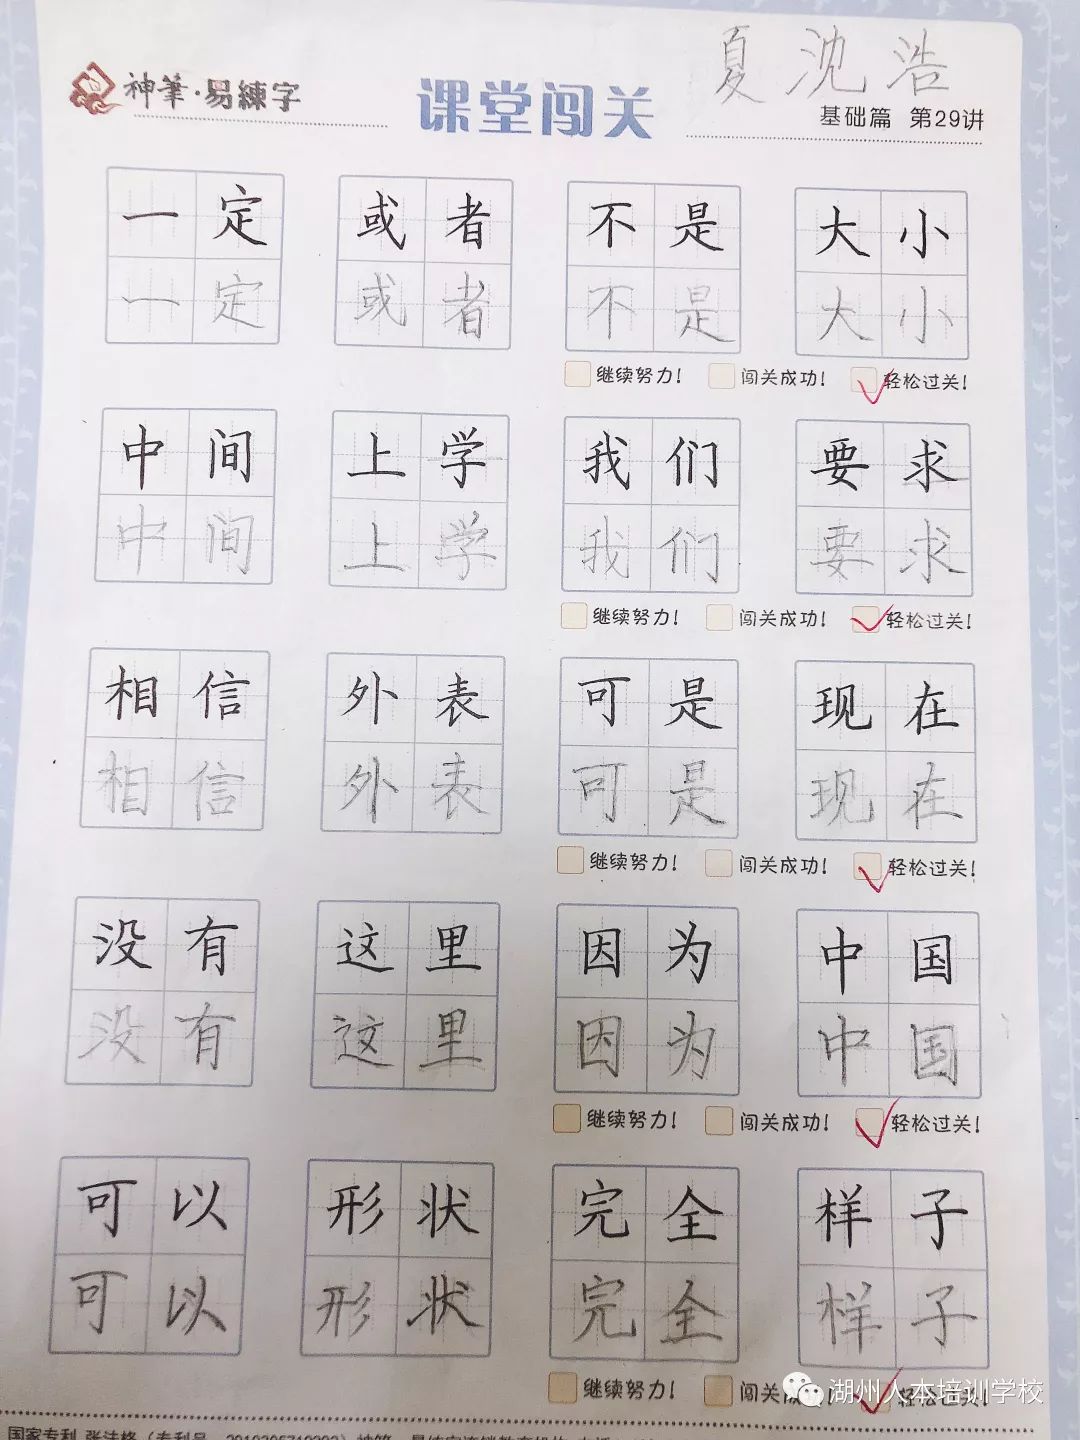 夏沈浩
神筆·易練字
课堂闯关
基础篇 第29讲
一定 或者 不是 大小
一定 或者 不是 大小
继续努力! 闯关成功! 轻松过关!
中间 上学 我们 要求
中间 上学 我们 要求
继续努力! 闯关成功! 轻松过关!
相信 外表 可是 现在
相信 外表 可是 现在
继续努力! 闯关成功! 轻松过关!
没有 这里 因为 中国
没有 这里 因为 中国
继续努力! 闯关成功! 轻松过关!
可以 形状 完全 样子
可以 形状 完全 样子
继续努力! 闯关成 轻松过关!
湖州人本培训学校
国家专利 张法格(专利号